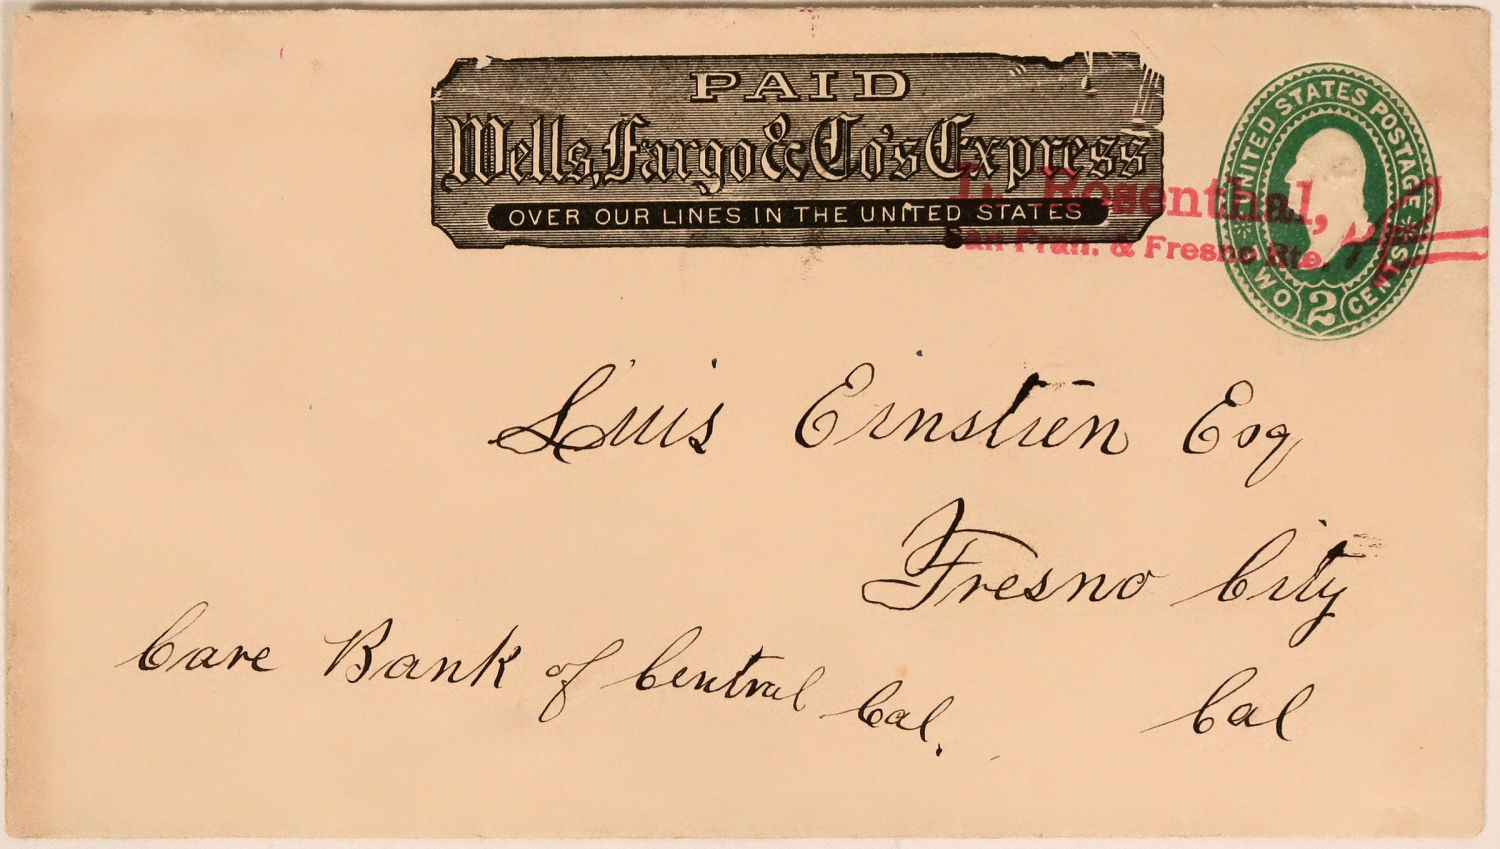 PAID
Wells, Fargo & Co's Express
OVER OUR LINES IN THE UNITED STATES
UNITED STATES POSTAGE
TWO 2 CENTS
L. Rosenthal,
San Fran. & Fresno Rte.
Luis Einstien Esq
Fresno City
Care Bank of Central Cal.
Cal